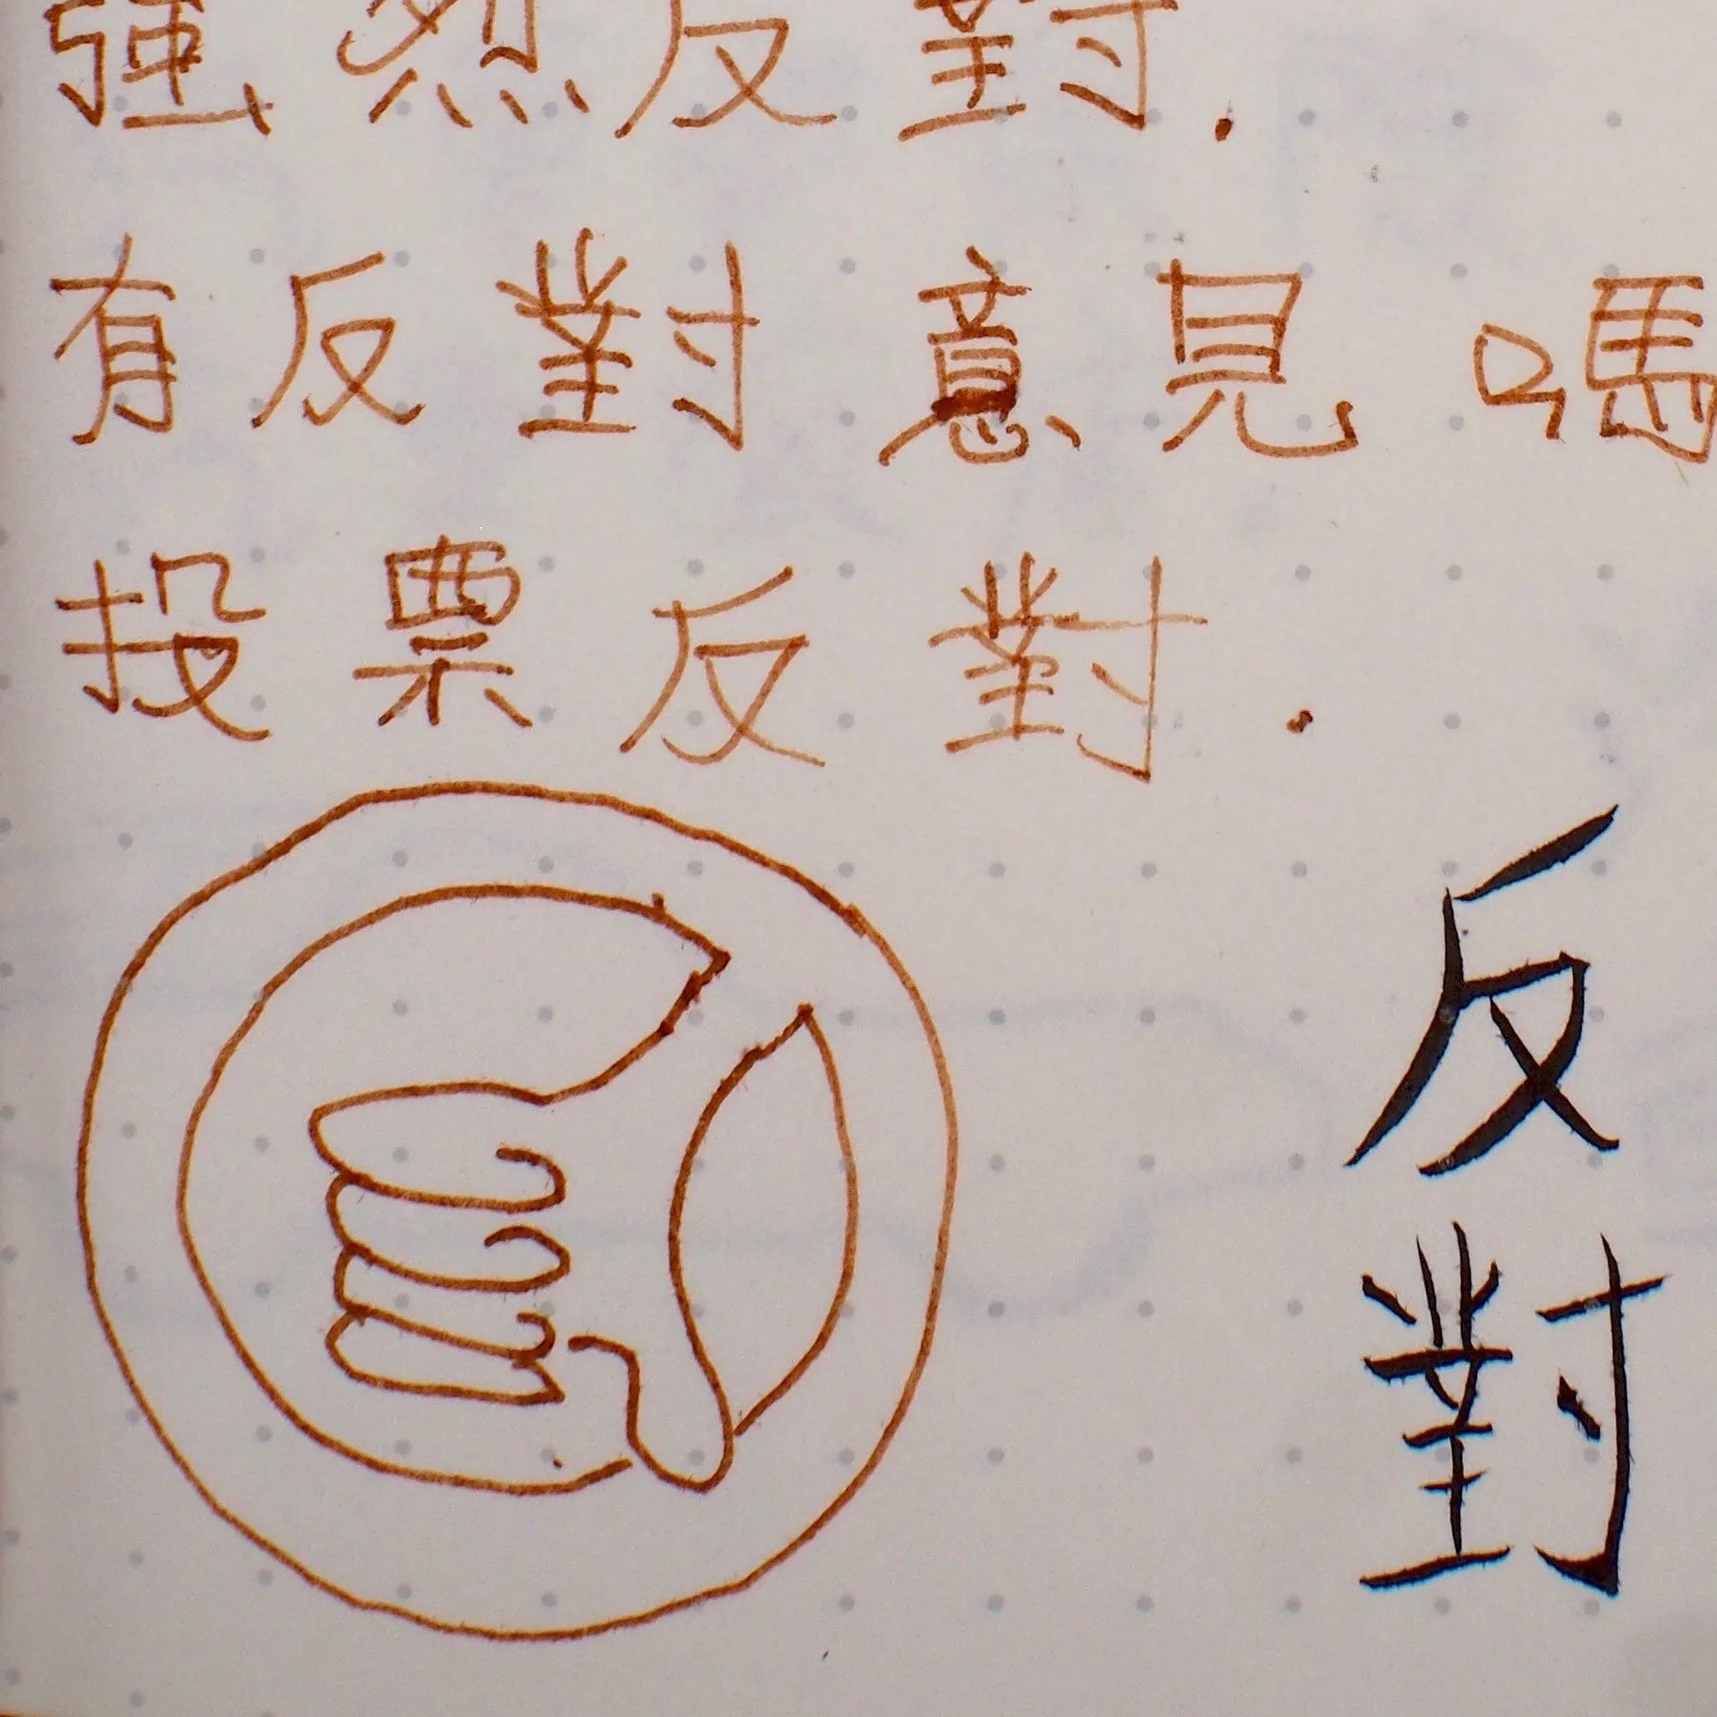 強烈反對.
有反對意見嗎
投票反對.
反
對